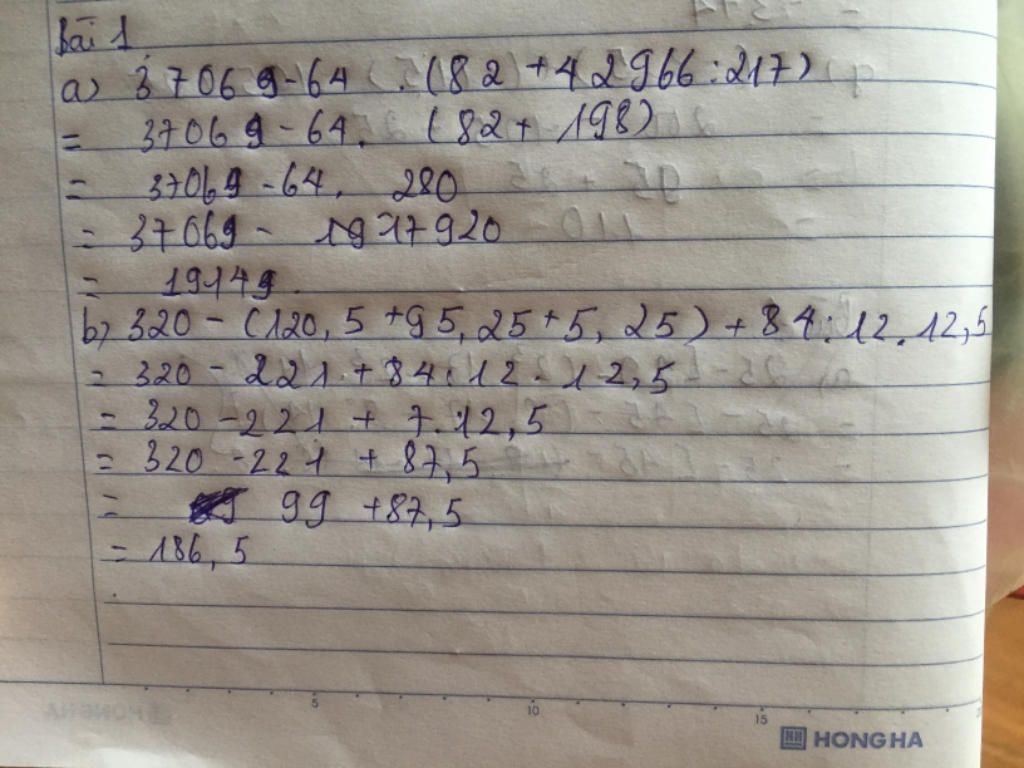 Bài 1
a) 37069-64 . (82 + 42966:217)
= 37069-64. (82+ 198)
= 37069-64. 280
= 37069- 17920
= 19149.
b) 320 - (120,5 +95,25+5,25) + 84:12.12,5
= 320 - 221 + 84:12.12,5
= 320 -221 + 7.12,5
= 320 -221 + 87,5
= 99 +87,5
= 186,5
5 10 15
HONG HA